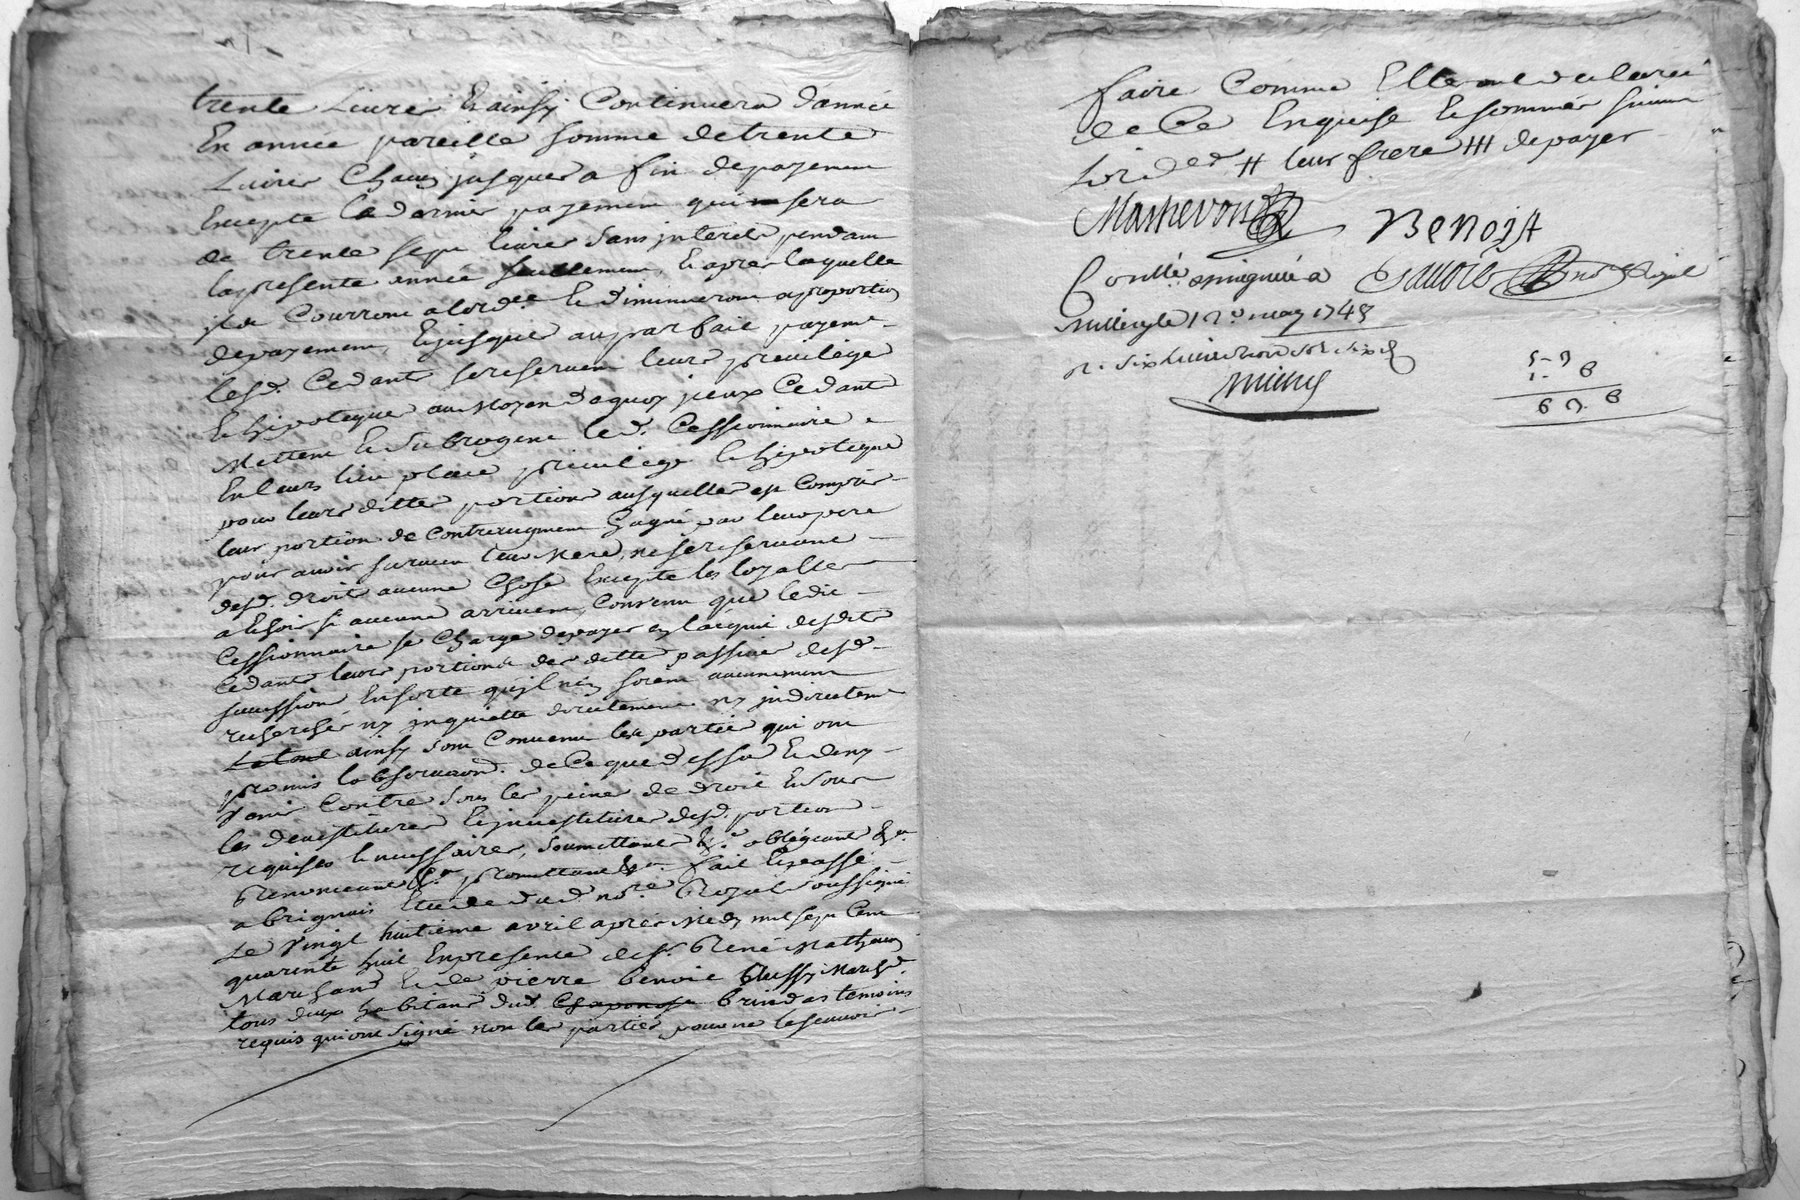 trente Livres Et ainsy Continuera d'année
En année pareille somme de trente
Livres Chacun jusques a fin de payement
Excepté le dernier payement qui sera
de trente sept livres sans jnterets pendant
la presente année seullement, Et apres laquelle
jls Courront alord.e Et diminueront a proportion
de payement, Et jusques au parfait payemt.
lesd. Cedants se reservent leurs privilege
Et hipoteque au Moyen de quoy jceux Cedant
Mettent Et subrogent led. Cessionnaire
En leurs lieu place privilege Et hipoteque
pour leurs dittes portions ausquelles est Compris
leur portion de Contreaugment Gagné par leur pere
pour avoir survecu leur Mere, ne se reservant
desd. droits aucune Chose Excepté les loyalles
a Echoir si aucune arrivent, Convenu que ledit
Cessionnaire se Charge de payer En l'acquit desdits
Cedants leurs portions des dettes passives desd.
succession En sorte qu'jl n'en soient aucunement
rechercher ny jnquietté directement ny jndirectemt
Le tout ainsy sont Convenu les parties qui ont
promis l'observaon. de Ce que dessus Et de ny
Venir Contre sous les peines de droit Et sous
les devestitures Et jnvestitures desd. portions
requises Et necessaires, soumettant &.a obligeant &.a
Renonceant &.a promettant &.a fait Et passé
a brignais Etude dud. no.re Royal soussigné
Le Vingt huitieme avril apres Midy mil sept Cent
quarante huit En presence de s.r René Mathevon
Marchand Et de pierre benoit aussy March.d
tous deux habitans dud. Chaponost brindas temoins
requis qui ont signé non les parties pour ne le scavoir
faire Comme Elle ont declaré
de Ce Enquise Et sommés suivant
L'ord.ce # leur frere ### de payer
Mathevon
BENOIST
Conllé
a
no.re Royal
Millery le 12.e may 1748
R. six livres trois sols six d
5 - 3
1 - 6
6 3. 6